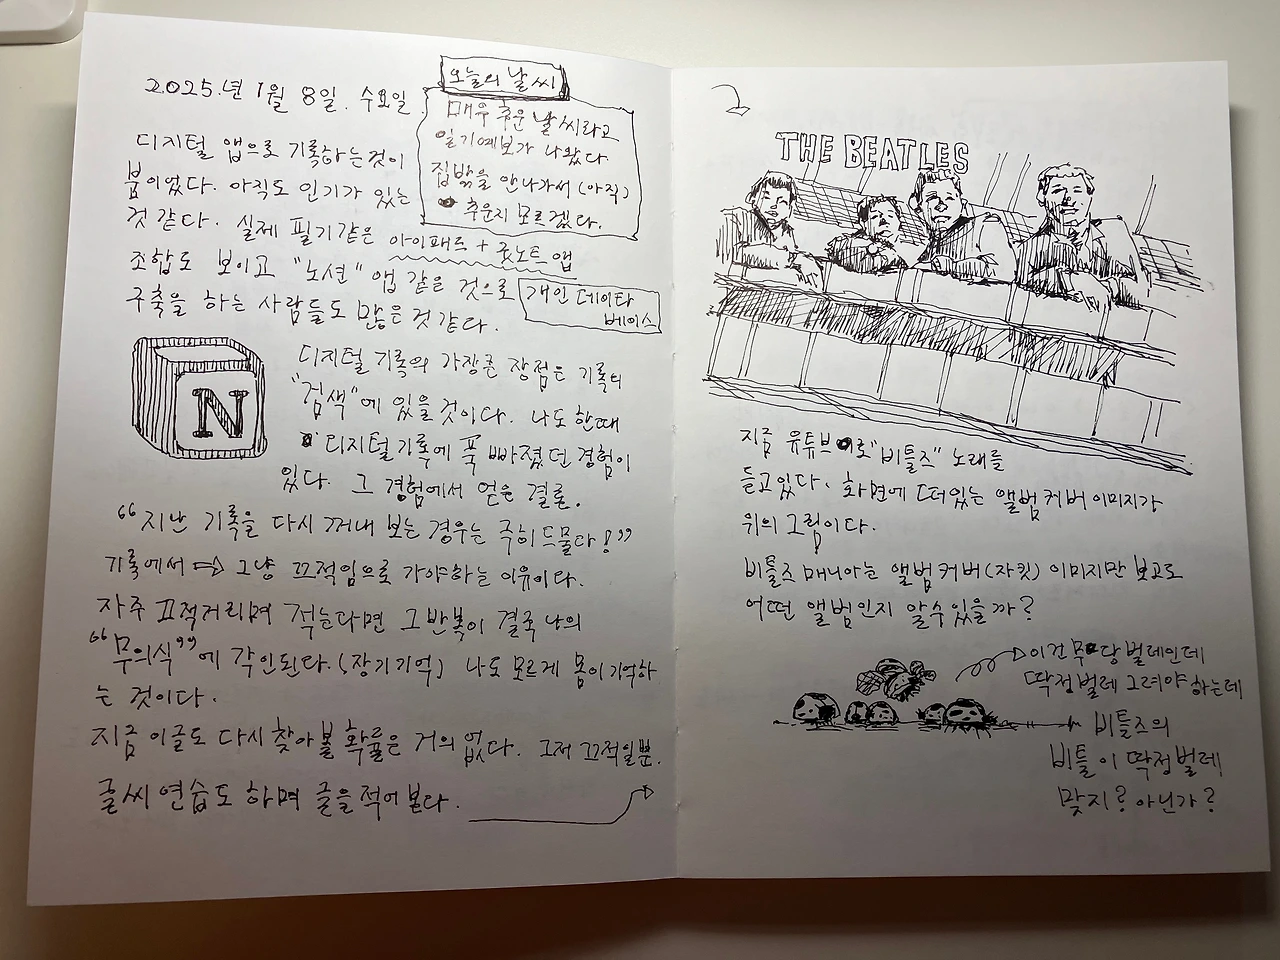 2025.년 1월 8일. 수요일
오늘의 날씨
매우 추운 날씨라고
일기예보가 나왔다
집밖을 안나가서 (아직)
추운지 모르겠다.
디지털 앱으로 기록하는것이
붐이었다. 아직도 인기가 있는
것 같다. 실제 필기같은 아이패드 + 굿노트 앱
조합도 보이고 "노션" 앱 같은 것으로 개인 데이타
베이스
구축을 하는 사람들도 많은 것 같다.
N
디지털 기록의 가장큰 장점은 기록의
"검색"에 있을 것이다. 나도 한때
디지털기록에 푹 빠졌던 경험이
있다. 그 경험에서 얻은 결론.
“지난 기록을 다시 꺼내 보는 경우는 극히 드물다!”
기록에서 ⇨ 그냥 끄적임으로 가야하는 이유이다.
자주 끄적거리며 적는다면 그 반복이 결국 나의
“무의식”에 각인된다. (장기기억) 나도 모르게 몸이 기억하
는 것이다.
지금 이글도 다시 찾아볼 확률은 거의 없다. 그저 끄적일뿐.
글씨 연습도 하며 글을 적어 본다.
THE BEATLES
지금 유튜브로 "비틀즈" 노래를
듣고있다. 화면에 떠있는 앨범커버 이미지가
위의 그림이다.
비틀즈 매니아는 앨범커버(자킷) 이미지만 보고도
어떤 앨범인지 알수있을까?
이건 무당벌레인데
딱정벌레 그려야 하는데
비틀즈의
비틀이 딱정벌레
맞지? 아닌가?